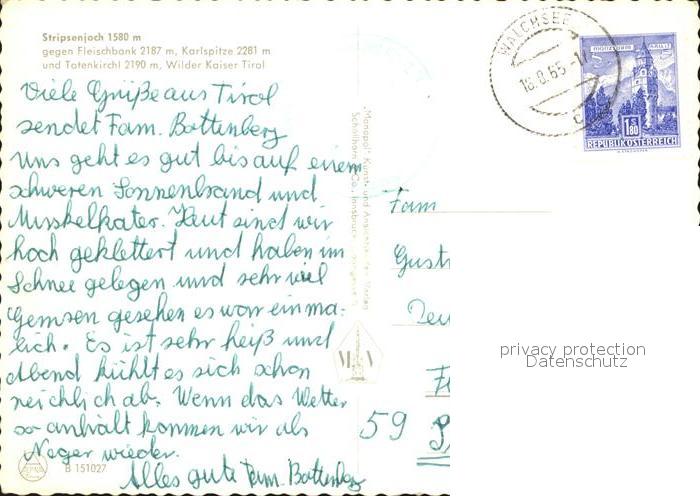 Stripsenjoch 1580 m
gegen Fleischbank 2187 m, Karlspitze 2281 m
und Totenkirchl 2190 m, Wilder Kaiser Tirol
Viele Grüße aus Tirol
sendet Fam. Bottenberg
Uns geht es gut bis auf einem
schweren Sonnenbrand und
Muskelkater. Heut sind wir
hoch geklettert und haben im
Schnee gelegen und sehr viel
Gemsen gesehen es war einma-
lich. Es ist sehr heiß und
Abend kühlt es sich schon
reichlich ab. Wenn das Wetter
so anhält kommen wir als
Neger wieder.
Alles gute Fam. Bottenberg
B 151027
„Monopol" Kunst- und Ansichtskarten Verlag
Schöllhorn & Co., Innsbruck
M V
WALCHSEE
18.8.65-17
C
S 1.80
REPUBLIK ÖSTERREICH
Fam
Gust
59
privacy protection
Datenschutz